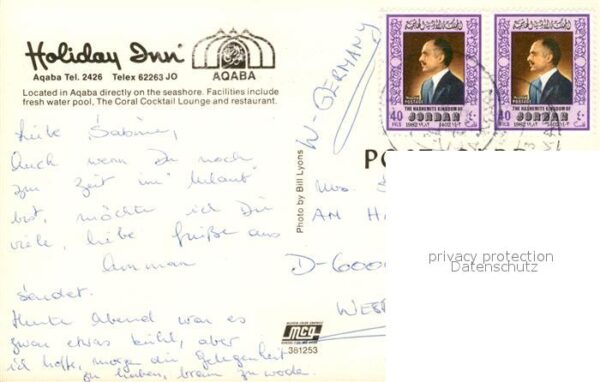 Holiday Inn
AQABA
Aqaba Tel. 2426 Telex 62263 JO
Located in Aqaba directly on the seashore. Facilities include
fresh water pool, The Coral Cocktail Lounge and restaurant.
Liebe Sabine,
Auch wenn Du noch
zur Zeit im "Urlaub"
bist, möchte ich Dir
viele, liebe Grüße aus
Amman
sendet.
Heute Abend war es
zwar etwas kühl, aber
ich hoffe, morgen die Gelegenheit
zu haben, braun zu werden.
Photo by Bill Lyons
mcg
381253
W-GERMANY
POST
AN
D-6000
WEST
POSTAGE
THE HASHEMITE KINGDOM OF
JORDAN
40 FILS
1982
POSTAGE
THE HASHEMITE KINGDOM OF
JORDAN
40 FILS
1982
privacy protection
Datenschutz